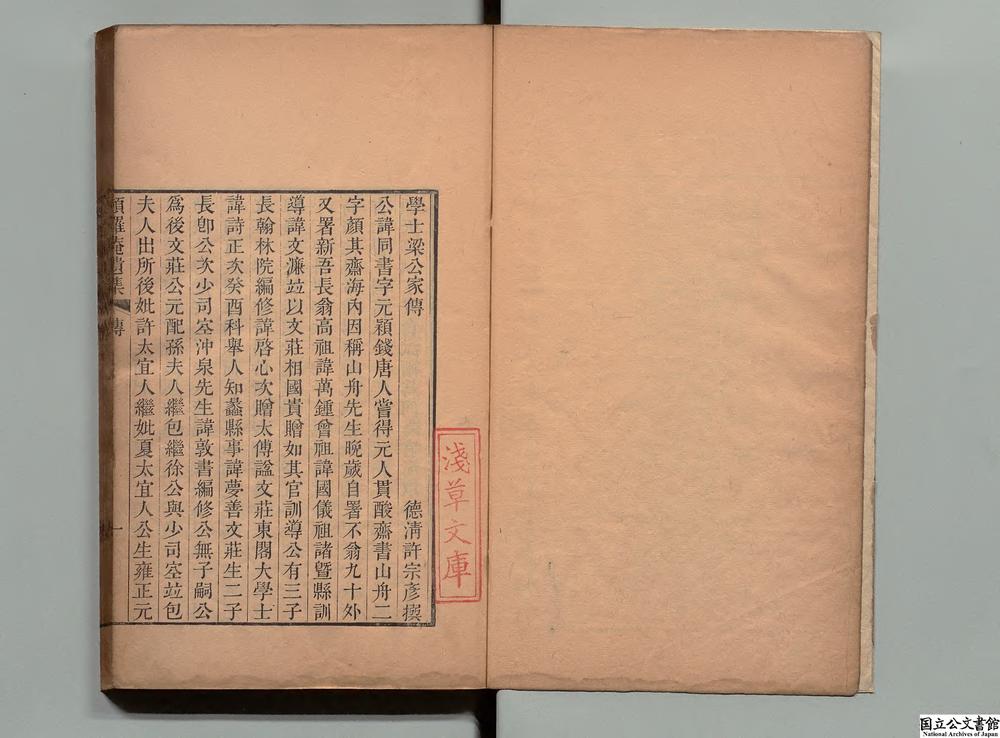 學士梁公家傳
德淸許宗彥撰
公諱同書字元穎錢唐人嘗得元人貫酸齋書山舟二
字顏其齋海內因稱山舟先生晚歲自署不翁九十外
又署新吾長翁高祖諱萬鍾曾祖諱國儀祖諸曁縣訓
導諱文濂竝以文莊相國貴贈如其官訓導公有三子
長翰林院編修諱啓心次贈太傅諡文莊東閣大學士
諱詩正次癸酉科舉人知蠡縣事諱夢善文莊生二子
長卽公次少司空沖泉先生諱敦書編修公無子嗣公
爲後文莊公元配孫夫人繼包繼徐公與少司空竝包
夫人出所後妣許太宜人繼妣夏太宜人公生雍正元
頻羅庵遺集
傳
一
淺草文庫
国立公文書館
National Archives of Japan